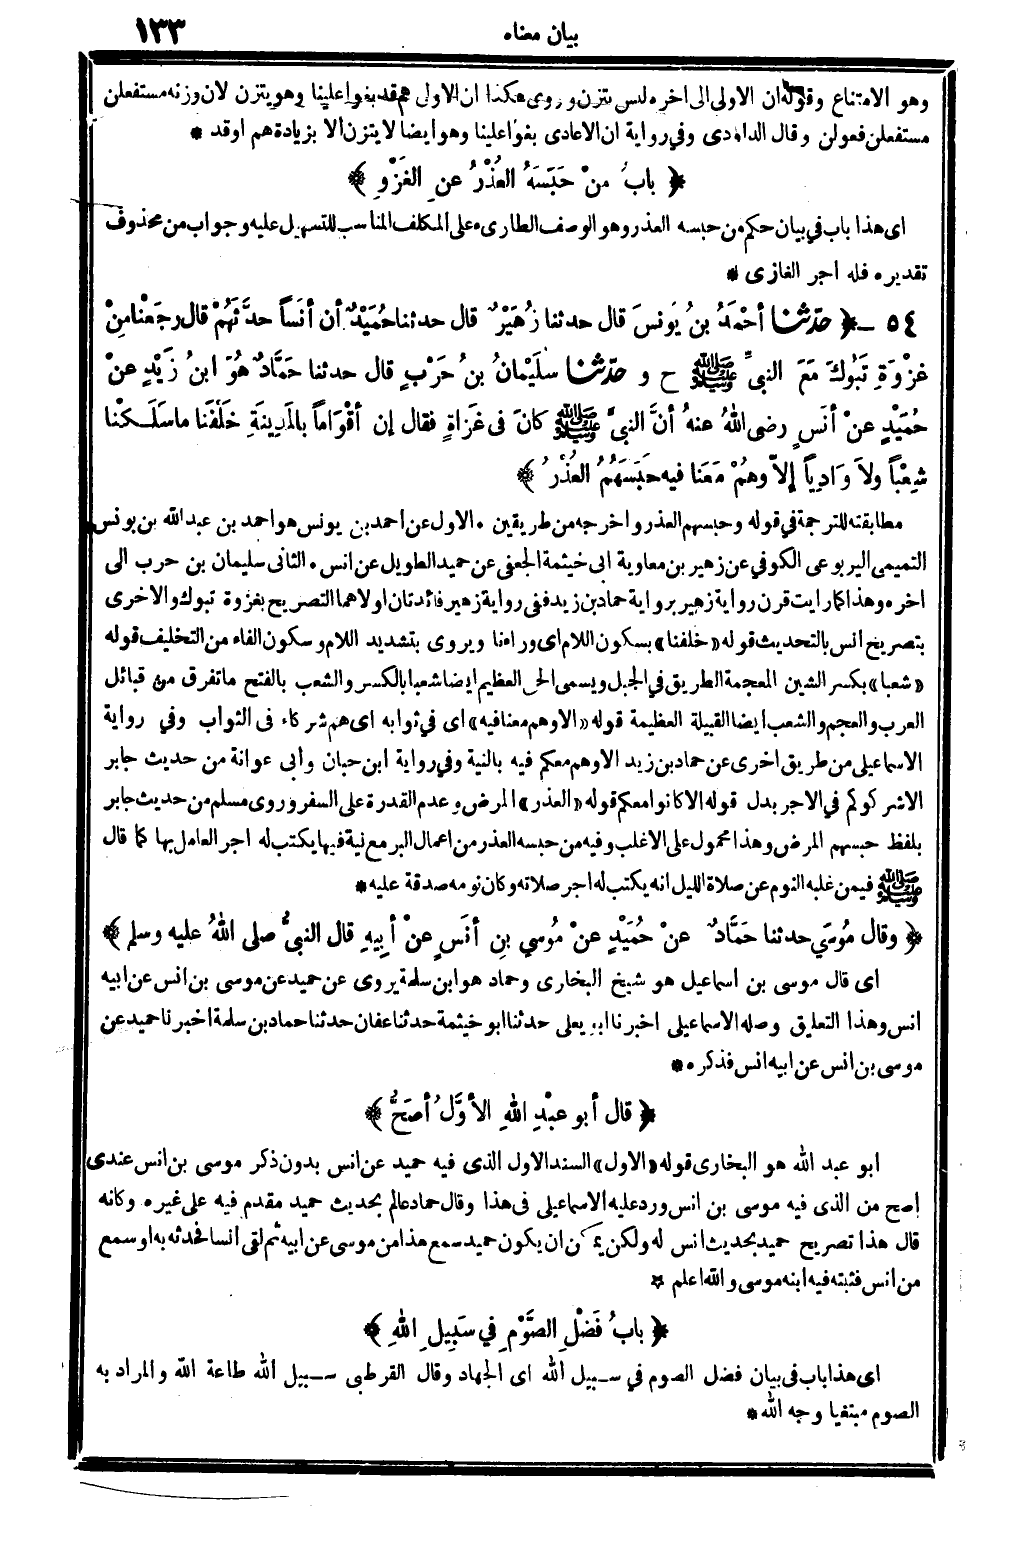 بيان معناه ١٣٣
وهو الامتناع وقوله ان الاولى الى اخره ليس بتزن وروى هكذا ان الاولى هم قد بغوا علينا وهو يتزن لان وزنه مستفعلن
مستفعلن فعولن وقال الداودى وفي رواية ان الاعادى بغوا علينا وهو ايضا لا يتزن الا بزيادة هم او قد *
﴿ بابُ منْ حَبَسَهُ العُذْرُ عنِ الغَزْوِ ﴾
اى هذا باب في بيان حكم من حبسه العذر وهو الوصف الطارىء على المكلف المناسب للتسهيل عليه وجواب من محذوف
تقديره فله اجر الغازى *
٥٤ - ﴿ حدّثنا أحْمَدُ بنُ يُونسَ قال حدثنا زُهَيْرٌ قال حدثنا حُمَيْدٌ أن أنَساً حدَّثَهُمْ قال رجَعْنا مِنْ
غزْوَةِ تَبُوكَ مَعَ النبىِّ ﷺ ح و حدّثنا سلَيْمانُ بنُ حَرْبٍ قال حدثنا حَمَّادٌ هُوَ ابنُ زَيْدٍ عنْ
حُمَيْدٍ عنْ أنَسٍ رضى اللهُ عنهُ أنَّ النبىَّ ﷺ كانَ فى غزَاةٍ فقال إن أقْوَاماً بالمَدِينَةِ خلْفَنا ما سلَكْنا
شِعْباً ولاَ وَادِياً إلاّ وهُمْ مَعَنا فيه حَبَسَهُمُ العُذْرُ ﴾
مطابقته للترجمة في قوله وحبسهم العذر واخرجه من طريقين . الاول عن احمد بن يونس هو احمد بن عبد الله بن يونس
التميمى اليربوعى الكوفي عن زهير بن معاوية ابى خيثمة الجعفى عن حميد الطويل عن انس . الثانى سليمان بن حرب الى
اخره وهذا كما رايت قرن رواية زهير برواية حماد بن زيد ففى رواية زهير فائدتان اولاهما التصريح بغزوة تبوك والاخرى
بتصريح انس بالتحديث قوله «خلفنا» بسكون اللام اى وراءنا ويروى بتشديد اللام وسكون الفاء من التخليف قوله
«شعبا» بكسر الشين المعجمة الطريق في الجبل ويسمى الحى العظيم ايضا شعبا بالكسر والشعب بالفتح ما تفرق من قبائل
العرب والعجم والشعب ايضا القبيلة العظيمة قوله «الا وهم معنا فيه» اى في ثوابه اى هم شركاء فى الثواب وفي رواية
الاسماعيلى من طريق اخرى عن حماد بن زيد الا وهم معكم فيه بالنية وفي رواية ابن حبان وأبى عوانة من حديث جابر
الا شركوكم في الاجر بدل قوله الا كانوا معكم قوله «العذر» المرض وعدم القدرة على السفر وروى مسلم من حديث جابر
بلفظ حبسهم المرض وهذا محمول على الاغلب وفيه من حبسه العذر من اعمال البر مع نية فيها يكتب له اجر العامل بها كما قال
ﷺ فيمن غلبه النوم عن صلاة الليل انه يكتب له اجر صلاته وكان نومه صدقة عليه *
﴿ وقال مُوسَى حدثنا حَمَّادٌ عنْ حُمَيْدٍ عنْ مُوسي بنِ أنَسٍ عنْ أبِيهِ قال النبىُّ صلى اللهُ عليه وسلم ﴾
اى قال موسى بن اسماعيل هو شيخ البخارى وحماد هو ابن سلمة يروى عن حميد عن موسى بن انس عن ابيه
انس وهذا التعليق وصله الاسماعيلى اخبرنا ابو يعلى حدثنا ابو خيثمة حدثنا عفان حدثنا حماد بن سلمة اخبرنا حميد عن
موسى بن انس عن ابيه انس فذكره *
﴿ قال أبو عبْدِ اللهِ الأوَّلُ أصَحُّ ﴾
ابو عبد الله هو البخارى قوله «الاول» السند الاول الذى فيه حميد عن انس بدون ذكر موسى بن انس عندى
اصح من الذى فيه موسى بن انس ورد عليه الاسماعيلى فى هذا وقال حماد عالم بحديث حميد مقدم فيه على غيره وكانه
قال هذا تصريح حميد بحديث انس له ولكن يمكن ان يكون حميد سمع هذا من موسى عن ابيه ثم لقى انسا فحدثه به او سمع
من انس فثبته فيه ابنه موسى والله اعلم *
﴿ بابُ فَضْلِ الصَّوْمِ في سَبِيلِ اللهِ ﴾
اى هذا باب فى بيان فضل الصوم في سبيل الله اى الجهاد وقال القرطبى سبيل الله طاعة الله والمراد به
الصوم مبتغيا وجه الله *